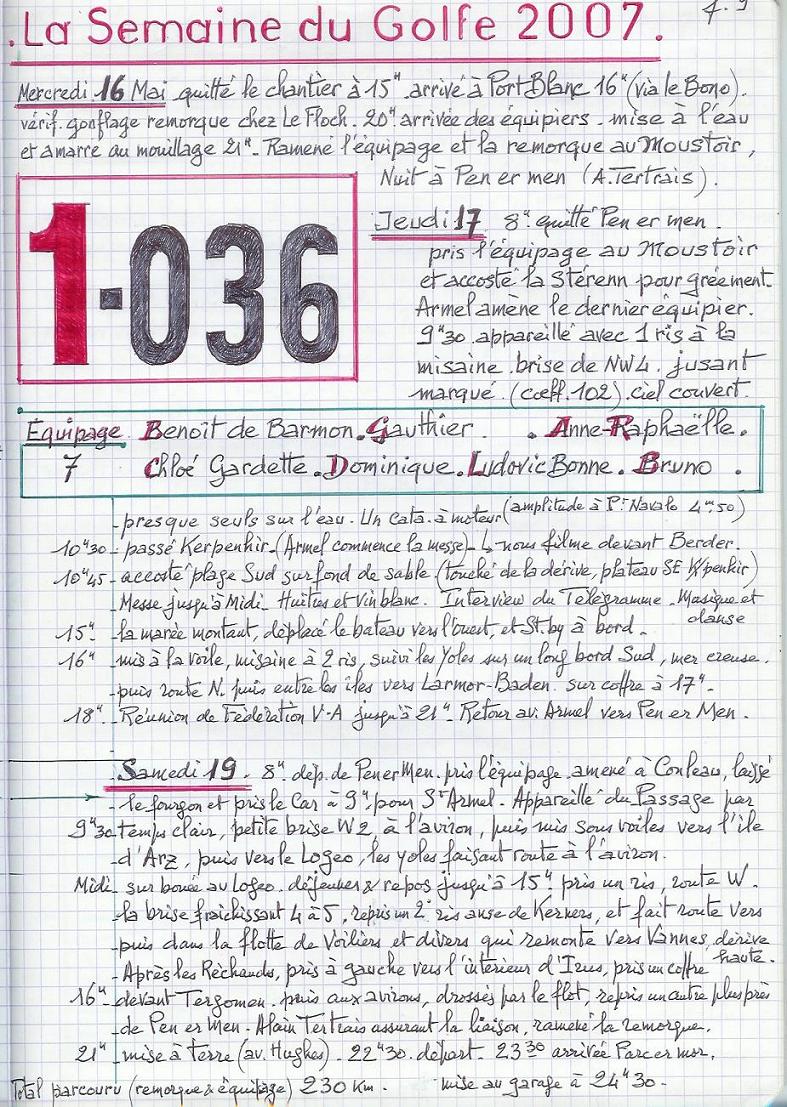 La Semaine du Golfe 2007.
Mercredi 16 Mai quitté le chantier à 15ʰ. arrivé à Port Blanc 16ʰ (via le Bono).
vérif. gonflage remorque chez Le Floch. 20ʰ. arrivée des équipiers. mise à l'eau
et amarre au mouillage 21ʰ. Ramené l'équipage et la remorque au Moustoir,
Nuit à Pen er men (A. Tertrais).
1-036
Jeudi 17 8ʰ. quitté Pen er men.
pris l'équipage au Moustoir
et accosté la Stérenn pour gréement.
Armel amène le dernier équipier.
9ʰ30. appareillé avec 1 ris à la
misaine. brise de NW4. jusant
marqué. (coeff. 102). ciel couvert.
Equipage Benoît de Barmon. Gauthier. . Anne-Raphaëlle.
7 Chloé Gardette. Dominique. Ludovic Bonne. Bruno .
presque seuls sur l'eau. Un cata. à moteur (amplitude à Pᵗ Navalo 4ᵐ50)
10ʰ30 - passé Kerpenhir. (Armel commence la messe) ↳ nous filme devant Berder.
10ʰ45 - accosté plage Sud sur fond de sable (touché de la dérive, plateau SE K/penhir)
Messe jusqu'à Midi. Huitres et Vin blanc. Interview du Télégramme. Musique et
danse
15ʰ. la marée montant, déplacé le bateau vers l'ouest, et St.by à bord.
16ʰ mis à la voile, misaine à 2 ris, suivi les Yoles sur un long bord Sud, mer creuse.
puis route N. puis entre les îles vers Larmor-Baden. sur coffre à 17ʰ.
18ʰ. Réunion de Fédération V-A jusqu'à 21ʰ. Retour av. Armel vers Pen er Men.
Samedi 19. 8ʰ. dép. de Pen er Men. pris l'équipage. amené à Conleau, laissé
le fourgon et pris le Car à 9ʰ. pour Sᵗ Armel. Appareillé du Passage par
9ʰ30 temps clair, petite brise W2, à l'aviron, puis mis sous voiles vers l'île
d'Arz, puis vers le Logeo, les yoles faisant route à l'aviron.
Midi. sur bouée au Logeo. déjeuner & repos jusqu'à 15ʰ. pris un ris, route W.
la brise fraichissant 4 à 5, repris un 2ᵉ ris anse de Kerners, et fait route vers
puis dans la flotte de Voiliers et divers qui remonte vers Vannes, dérive
haute.
Après les Réchauds, pris à gauche vers l'intérieur d'Irus, pris un coffre
16ʰ - devant Tergomen. puis aux avirons, drossés par le flot, repris un autre plus près
de Pen er Men. Alain Tertrais assurant la liaison, ramené la remorque.
21ʰ - mise à terre (av. Hughes). 22ʰ30. départ. 23³⁰ arrivée Parc er mor.
Total parcouru (remorque & équipage) 230 Km. mise au garage à 24ʰ30.